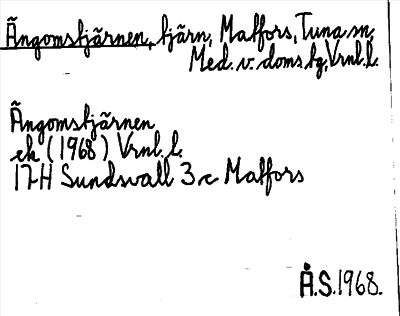 Ängomstjärnen, tjärn, Matfors, Tuna sn,
Med. v. doms.tg, Vrnl. l.
Ängomstjärnen
ek (1968) Vrnl. l.
17H Sundsvall 3 c Matfors
Å.S. 1968.